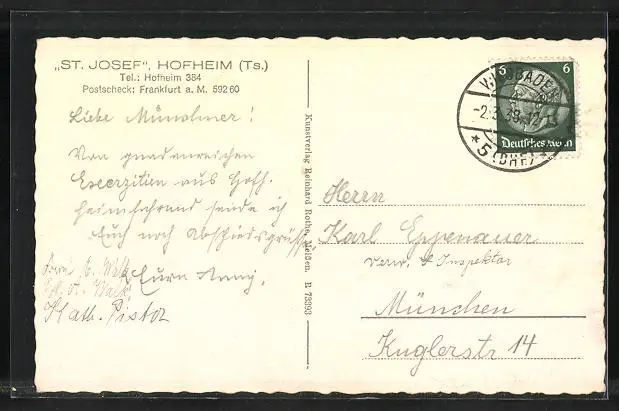 „ST. JOSEF“, HOFHEIM (Ts.)
Tel.: Hofheim 384
Postscheck: Frankfurt a. M. 59260
Liebe Münchner!
Von gnadenreichen
Exerzitien aus Hofh.
heimfahrend sende ich
Euch noch Abschiedsgrüße
Eure Anny.
Kath. Pistor
Kunstverlag Reinhard Rothe, Meißen. R 73393
WIESBADEN
* 5 (BHF) *
6 6
Deutsches Reich
Herrn
Karl Eppenauer
Verw. Inspektor
München
Kuglerstr 14